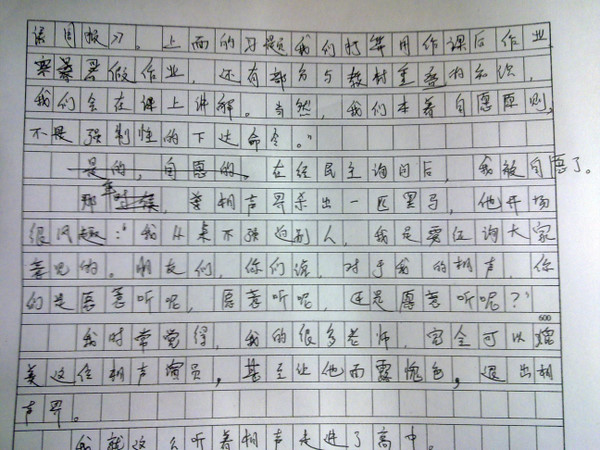 练习报刀。上面的习题我们打算用作课后作业
寒暑假作业，还有部分与教材重叠的知识，
我们会在课上讲解。当然，我们本着自愿原则，
不是强制性的下达命令。”
是的，自愿的。在经民主询问后，我被自愿了。
那年时候，音相声界杀出一匹黑马，他开场
很风趣：“我从来不强迫别人，我是要征询大家
意见的。朋友们，你们说，对于我的相声，你
们是愿意听呢，愿意听呢，还是愿意听呢？”
600
我时常觉得，我的很多老师，完全可以媲
美这位相声演员，甚至让他面露愧色，退出相
声界。
我就这么听着相声走进了高中。